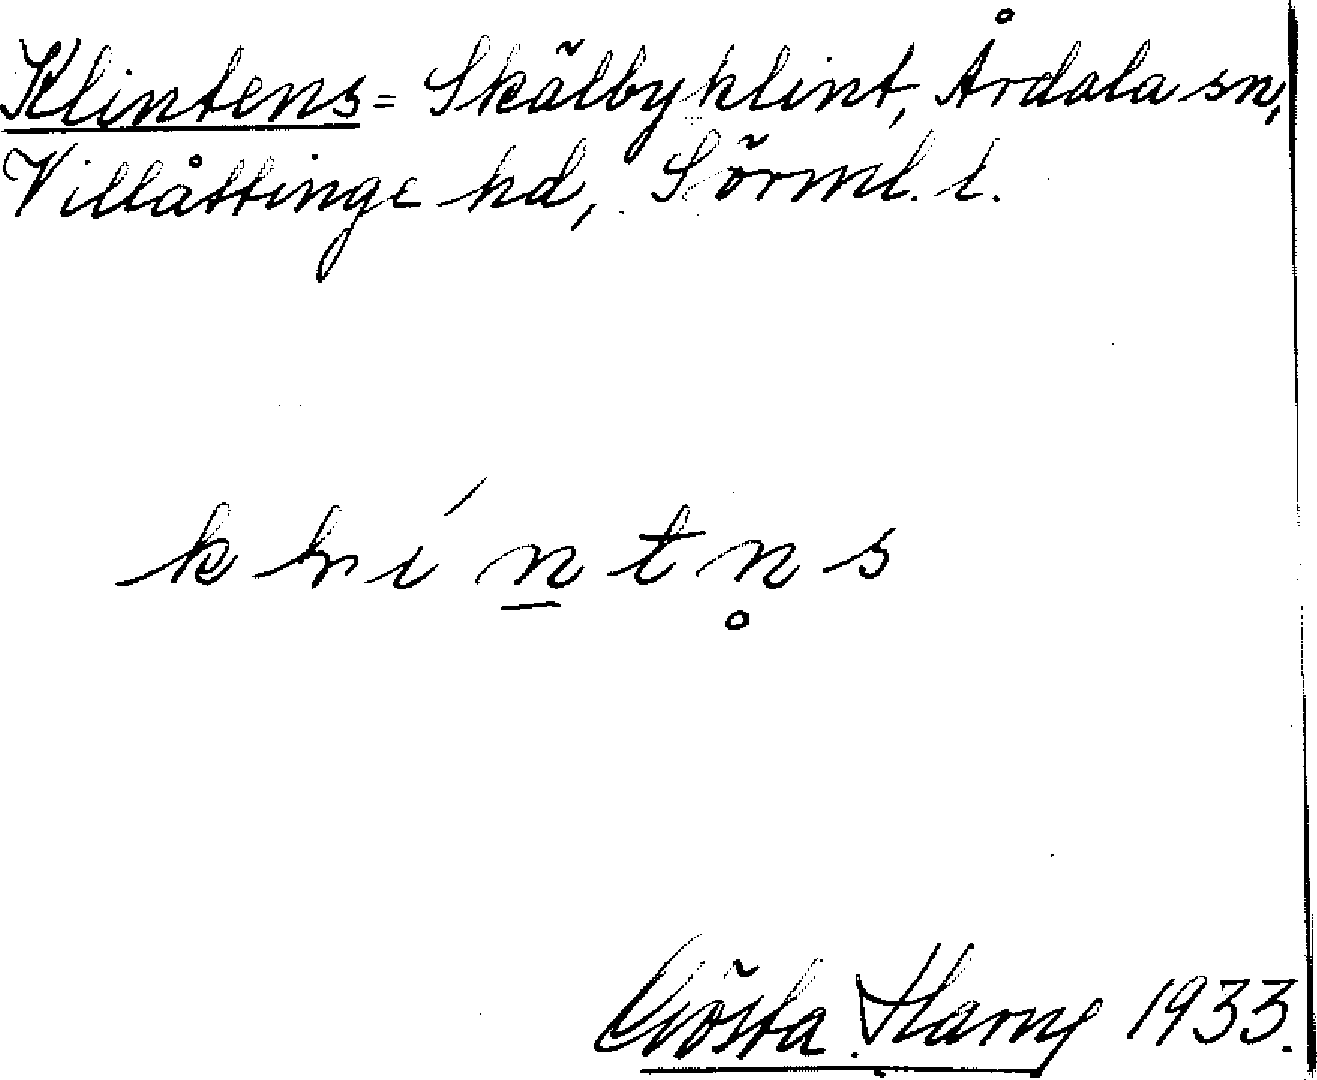 Klintens = Skälbyklint, Årdala sn,
Villåttinge hd, Sörml. l.
Gösta 1933.